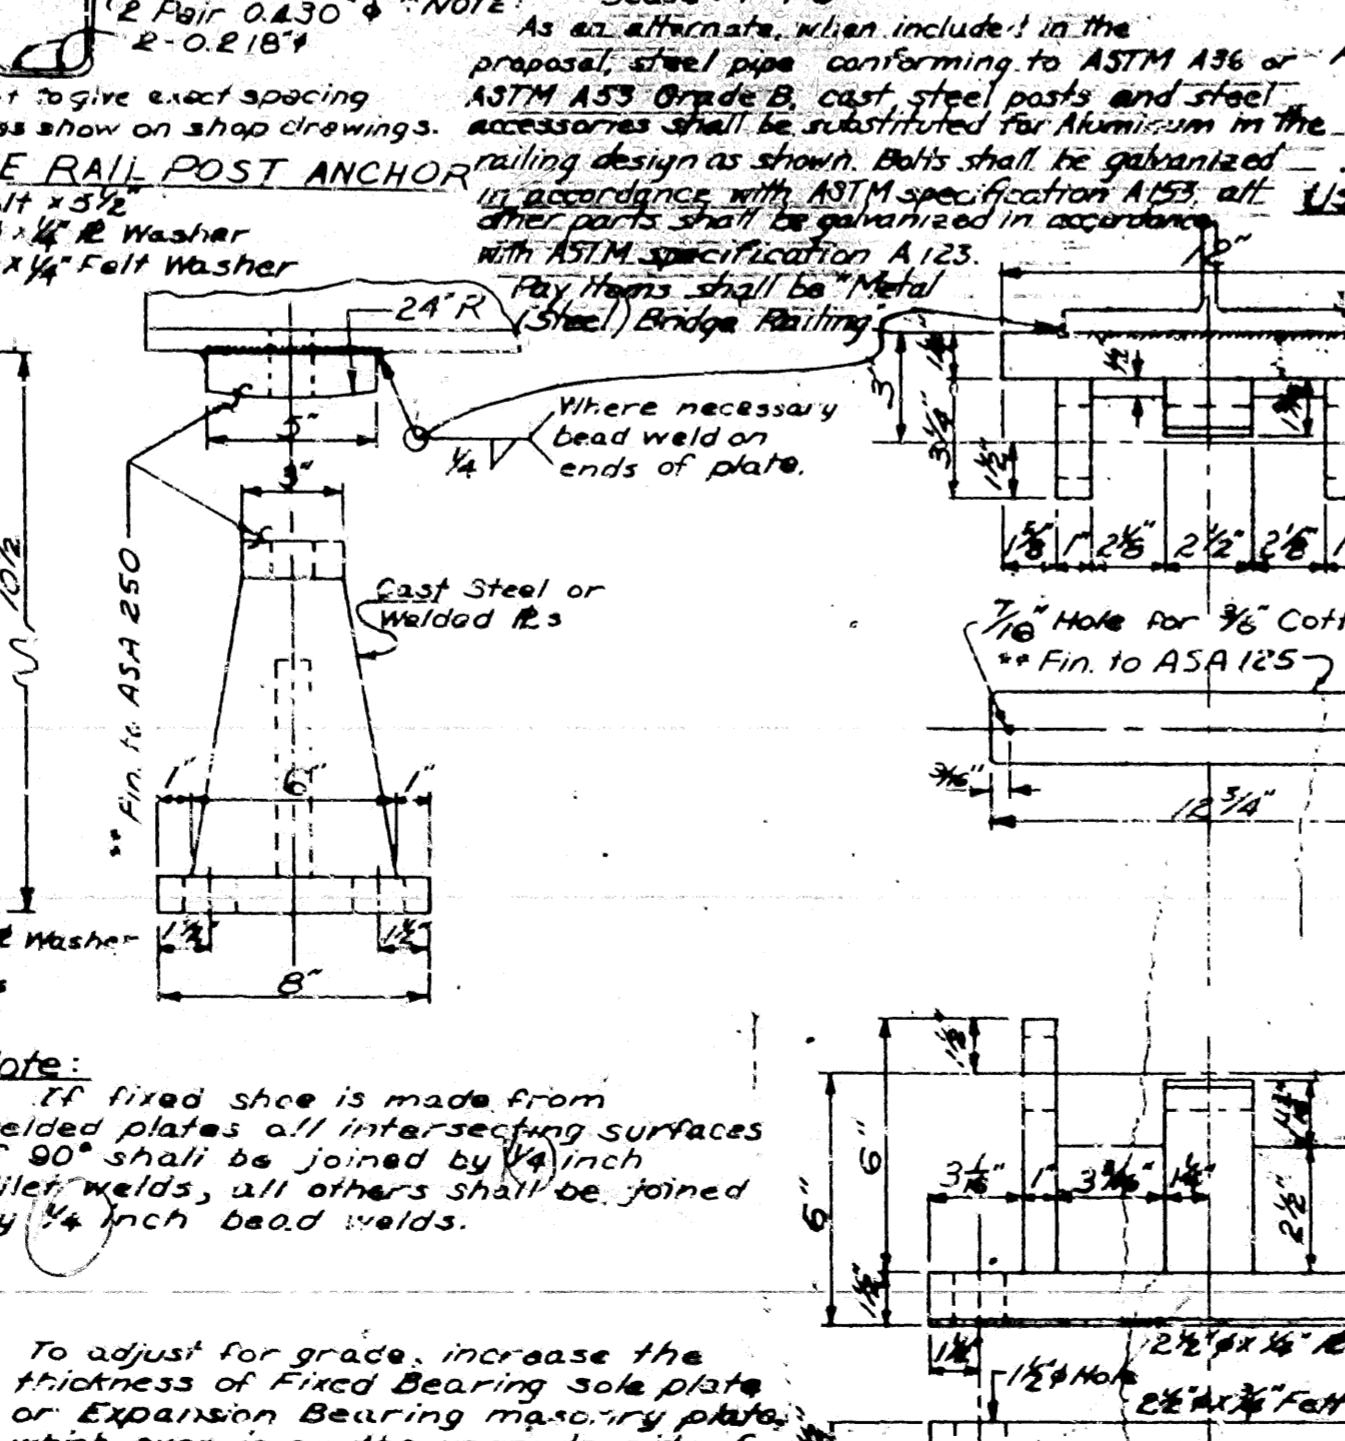 2 Pair 0.430"φ
2-0.218"φ
to give exact spacing
as show on shop drawings.
E RAIL POST ANCHOR
x 5½"
x ¼" ℞ Washer
x ¼" Felt Washer
NOTE:
As an alternate, when included in the
proposal, steel pipe conforming to ASTM A36 or
ASTM A53 Grade B, cast steel posts and steel
accessorres shall be substituted for Aluminum in the
railing design as shown. Bolts shall be galvanized
in accordance with ASTM specification A153, all
other parts shall be galvanized in accordance
with ASTM specification A 123.
Pay Items shall be "Metal
(Steel) Bridge Railing"
24" R
5"
3"
¼
Where necessary
bead weld on
ends of plate.
10½
** Fin. to ASA 250
Cast Steel or
Welded ℞s
1" 6" 1"
1½" 1½"
8"
Washer
3"
3¼"
1½"
½
1⅝" 1" 2⅛" 2½" 2⅛"
7/16" Hole for
** Fin. to ASA 125
9/16"
12 3/4"
ote:
If fixed shoe is made from
elded plates all intersecting surfaces
90° shall be joined by ¼ inch
welds, all others shall be joined
y ¼ inch bead welds.
To adjust for grade, increase the
thickness of Fixed Bearing sole plate
or Expansion Bearing masonry plate,
1½"
6" 6"
3 1/16" 1" 1¼"
2½"
1½"
1½"φ Hole